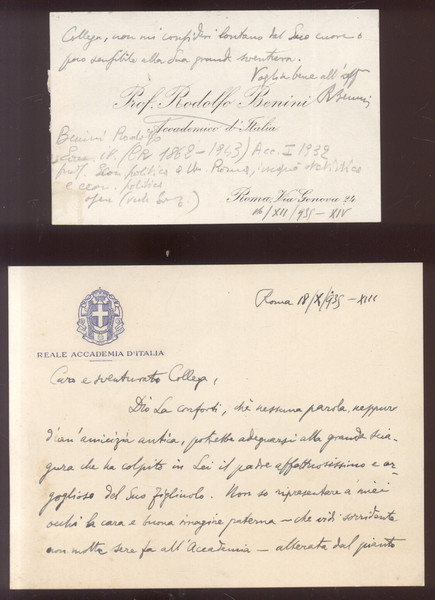 Collega, non mi consideri lontano dal Suo cuore o
poco sensibile alla Sua grande sventura.
Voglia bene all'aff
Prof. Rodolfo Benini RBenini
Accademico d'Italia
Benini Rodolfo
(CR 1862-1943) Acc. I 1932
prof. Econ. politica a Un. Roma, insegnò statistica
e econ. politica
opere (vedi
Roma, Via Genova 24
16/XII/935-XIV
Roma 18/X/935-XIII
REALE ACCADEMIA D'ITALIA
Caro e sventurato Collega,
Dio La conforti, chè nessuna parola, neppur
d'un'amicizia antica, potrebbe adeguarsi alla grande scia-
gura che ha colpito in Lei il padre affettuosissimo e or-
goglioso del Suo figliuolo. Non so ripresentare a' miei
occhi la cara e buona imagine paterna - che vidi sorridente
non molte sere fa all'Accademia - alterata dal pianto